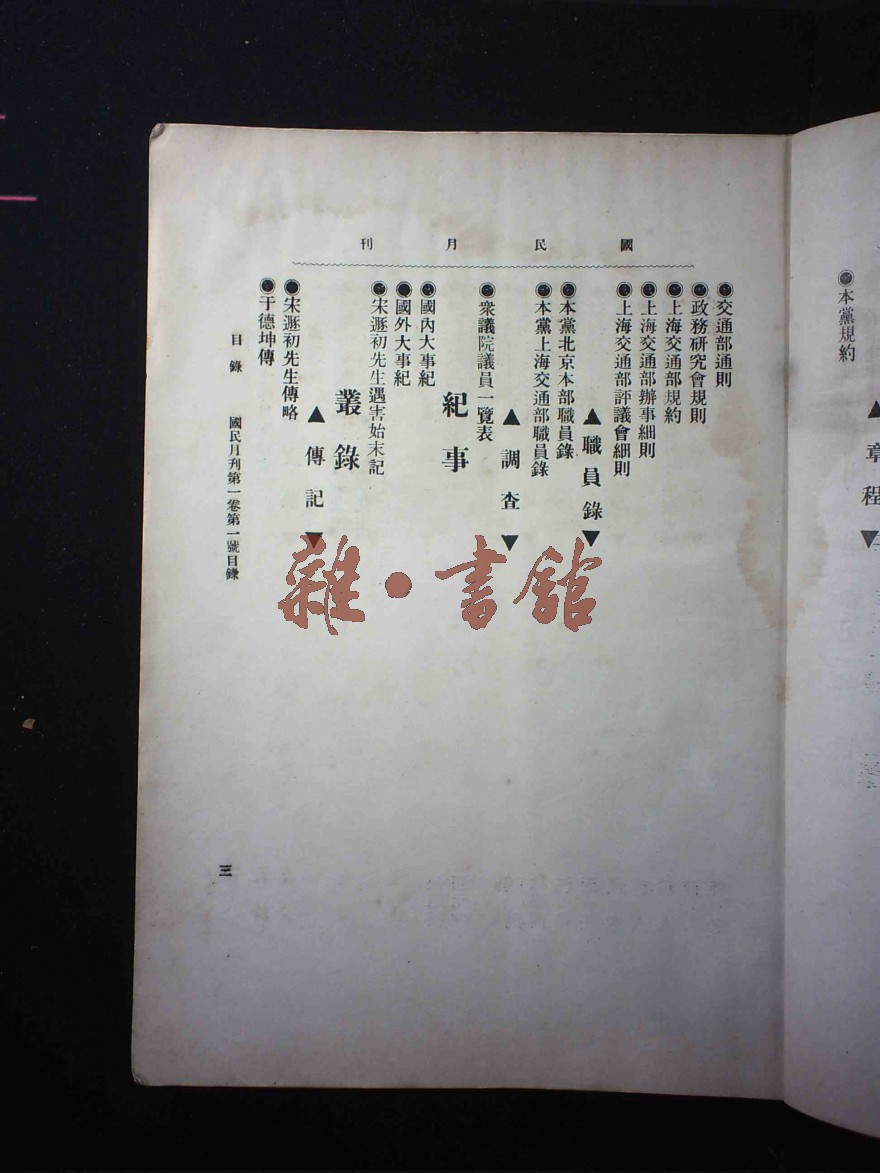 ▲章程▼
●本黨規約
國民月刊
●交通部通則
●政務研究會規則
●上海交通部規約
●上海交通部辦事細則
●上海交通部評議會細則
▲職員錄▼
●本黨北京本部職員錄
●本黨上海交通部職員錄
▲調查▼
●衆議院議員一覽表
紀事
●國內大事紀
●國外大事紀
●宋遯初先生遇害始末記
叢錄
▲傳記▼
●宋遯初先生傳略
●于德坤傳
目錄 國民月刊第一卷第一號目錄
三
雜·書館